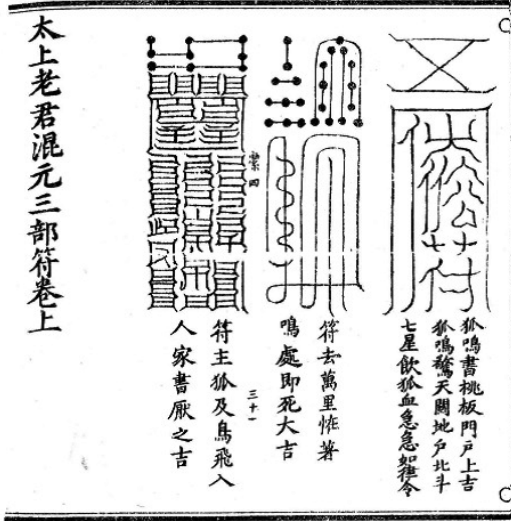 狐鳴書桃板門戸上吉
狐鳴驚天闕地戸北斗
七星飲狐血急急如律令
符去萬里恠著
鳴處即死大吉
三十一
符主狐及鳥飛入
人家書厭之吉
太上老君混元三部符卷上